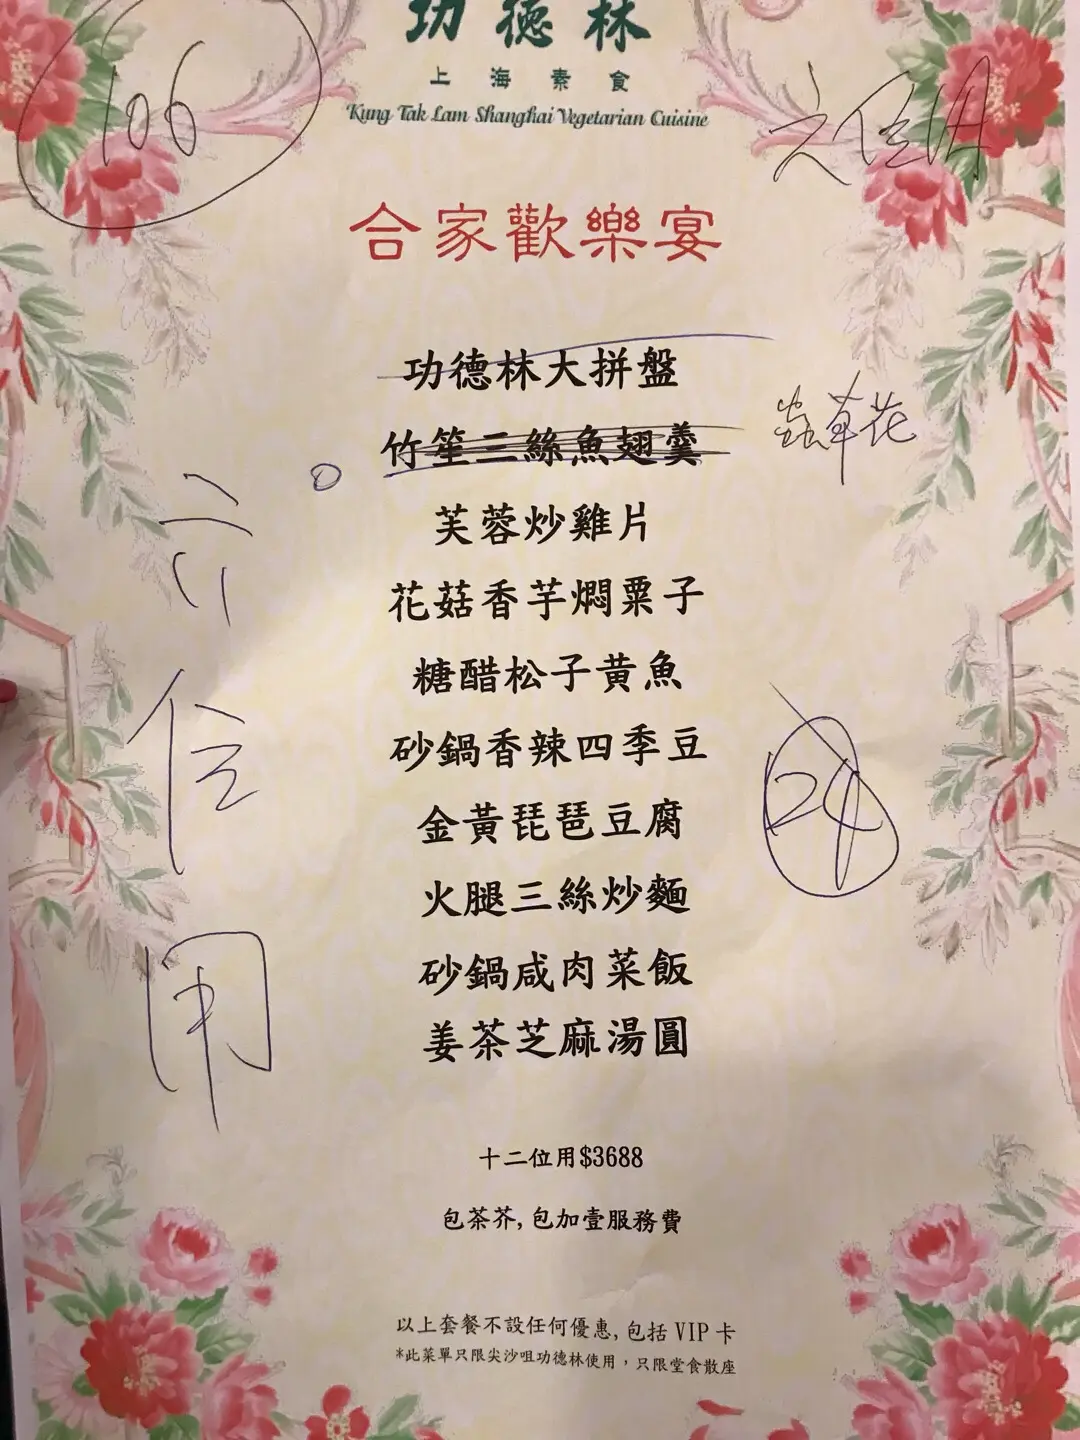 功德林
106
上海素食
Kung Tak Lam Shanghai Vegetarian Cuisine
六位
合家歡樂宴
功德林大拼盤
竹笙三絲魚翅羹
蟲草花
芙蓉炒雞片
花菇香芋燜粟子
糖醋松子黃魚
砂鍋香辣四季豆
24
金黃琵琶豆腐
火腿三絲炒麵
砂鍋咸肉菜飯
姜茶芝麻湯圓
六位用
十二位用$3688
包茶芥, 包加壹服務費
以上套餐不設任何優惠, 包括 VIP 卡
*此菜單只限尖沙咀功德林使用，只限堂食散座